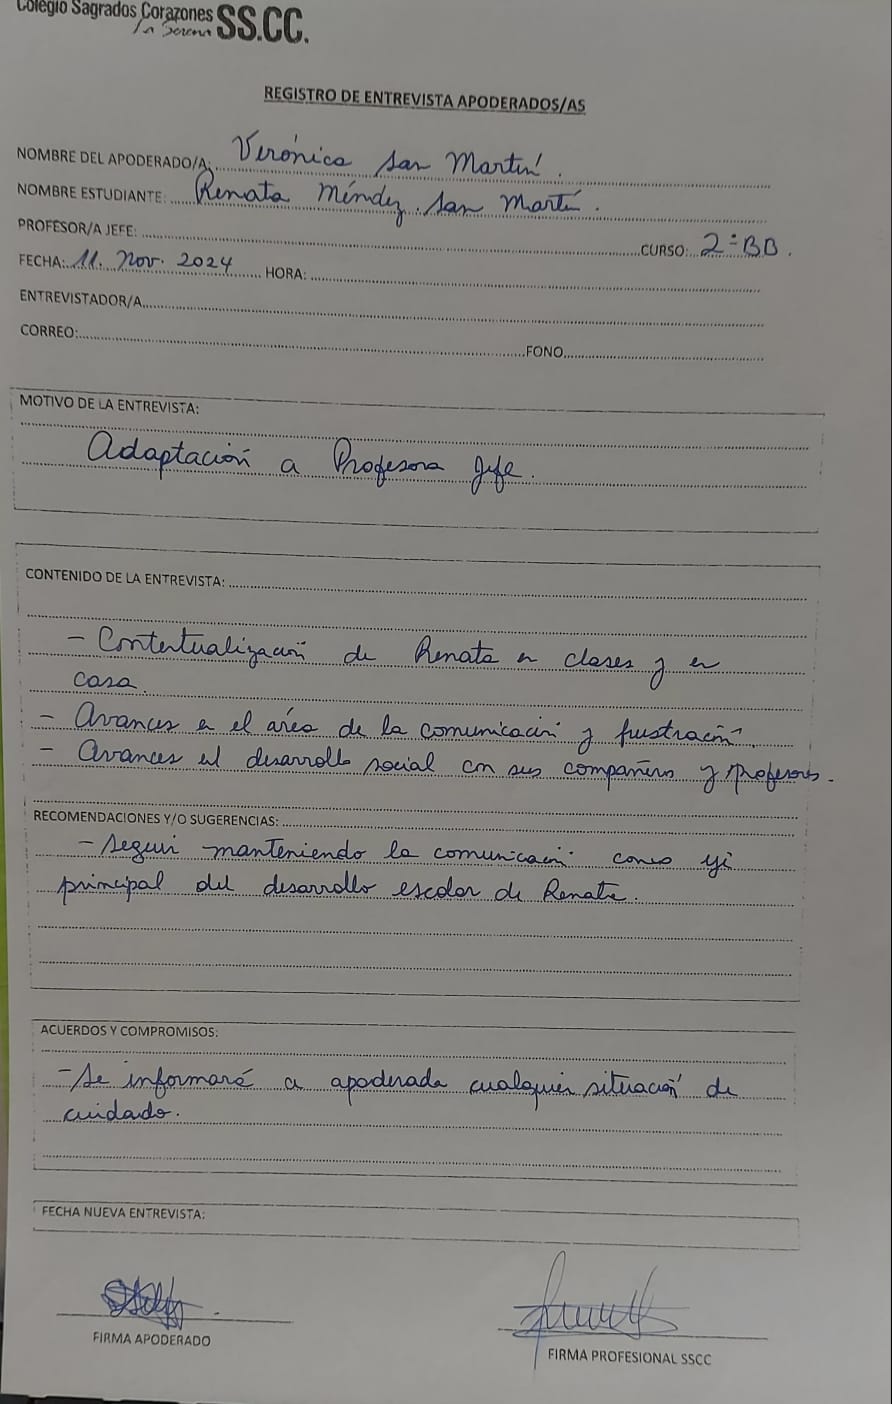 Colegio Sagrados Corazones SS.CC.
La Serena
REGISTRO DE ENTREVISTA APODERADOS/AS
NOMBRE DEL APODERADO/A: Verónica San Martín.
NOMBRE ESTUDIANTE: Renata Méndez San Martín.
PROFESOR/A JEFE: CURSO: 2° BD.
FECHA: 11. Nov. 2024 HORA:
ENTREVISTADOR/A
CORREO: FONO
MOTIVO DE LA ENTREVISTA:
Adaptación a Profesora Jefe.
CONTENIDO DE LA ENTREVISTA:
- Contextualización de Renata en clases y en
casa.
- Avances en el área de la comunicación y frustración.
- Avances el desarrollo social con sus compañeros y profesores.
RECOMENDACIONES Y/O SUGERENCIAS:
- Seguir manteniendo la comunicación como eje
principal del desarrollo escolar de Renata.
ACUERDOS Y COMPROMISOS:
- Se informará a apoderada cualquier situación de
cuidado.
FECHA NUEVA ENTREVISTA:
FIRMA APODERADO
FIRMA PROFESIONAL SSCC